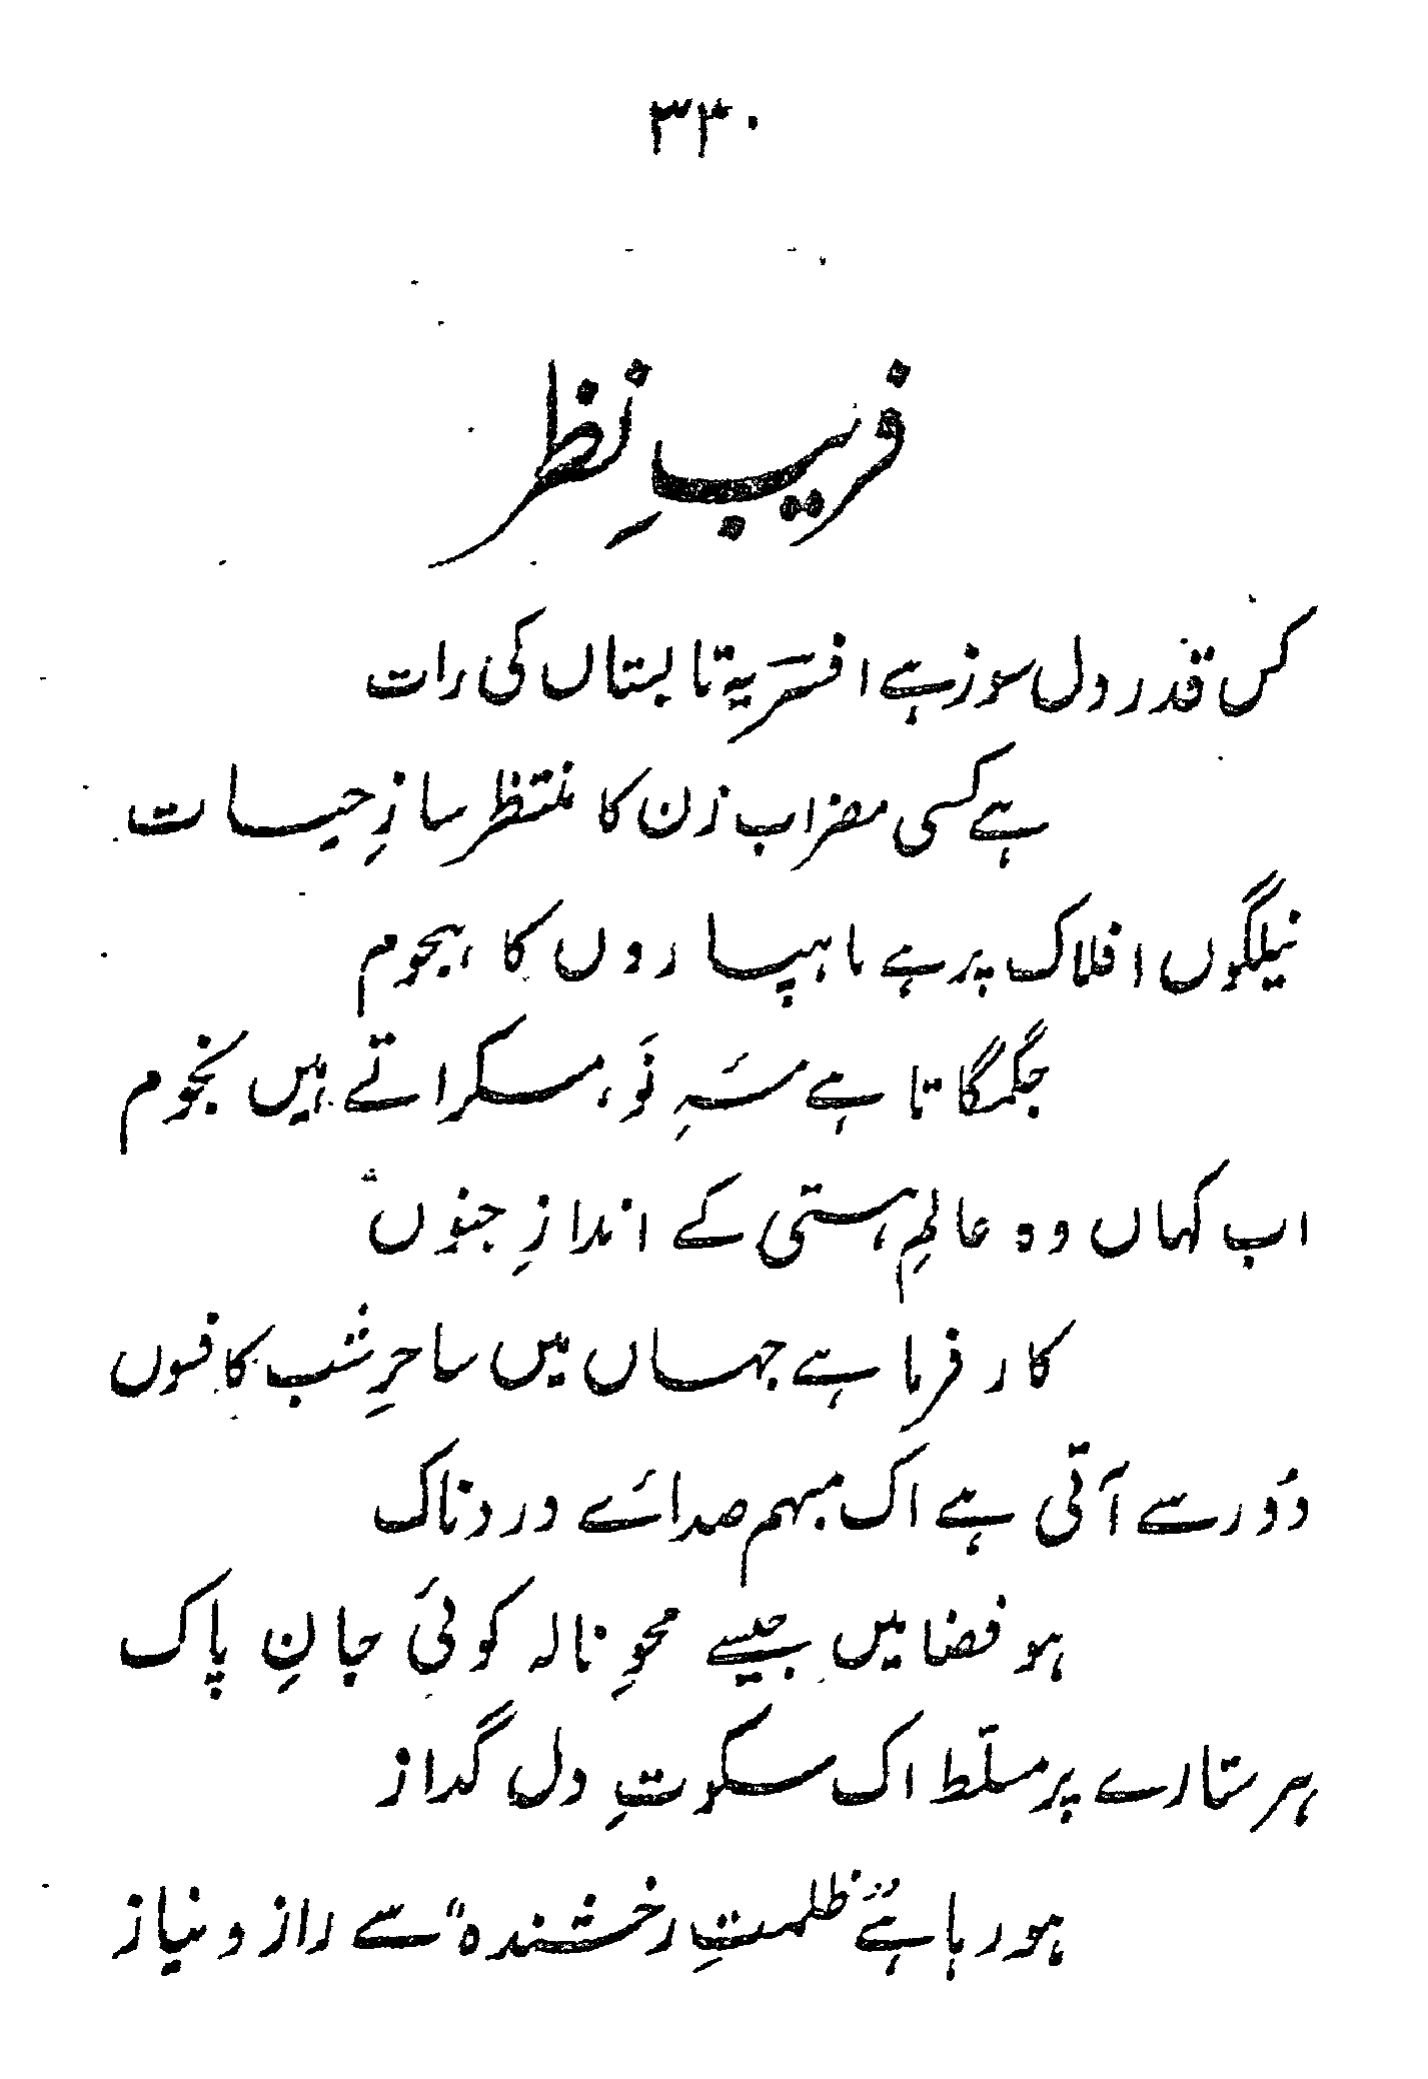 ۳۳۰
فریبِ نظر
کس قدر دل سوز ہے افسر یہ تابستاں کی رات
ہے کسی مضراب زن کا منتظر سازِ حیات
نیلگوں افلاک پر ہے ماہپاروں کا ہجوم
جگمگاتا ہے مَہِ نَو، مسکراتے ہیں نجوم
اب کہاں وہ عالمِ ہستی کے اندازِ جنوں
کار فرما ہے جہاں میں ساحرِ شب کا فسوں
دُور سے آتی ہے اک مبہم صدائے درد ناک
ہو فضا میں جیسے محوِ نالہ کوئی جانِ پاک
ہر ستارے پر مسلّط اک سکوتِ دل گداز
ہو رہا ہے "ظلمتِ رخشندہ" سے راز و نیاز